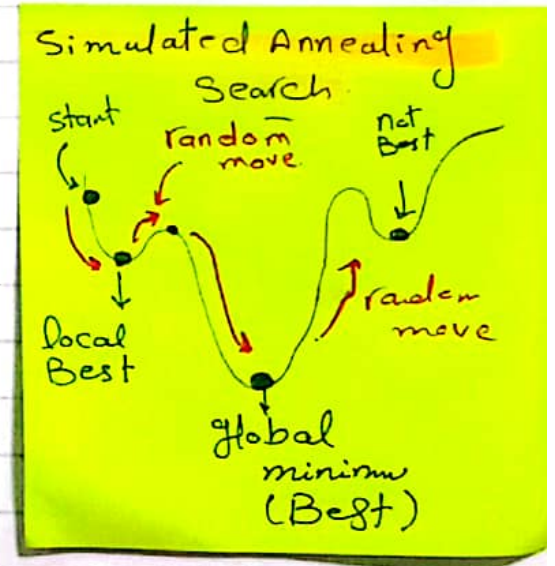 Simulated Annealing
Search
start
random
move
not
Best
local
Best
random
move
Global
minimu
(Best)